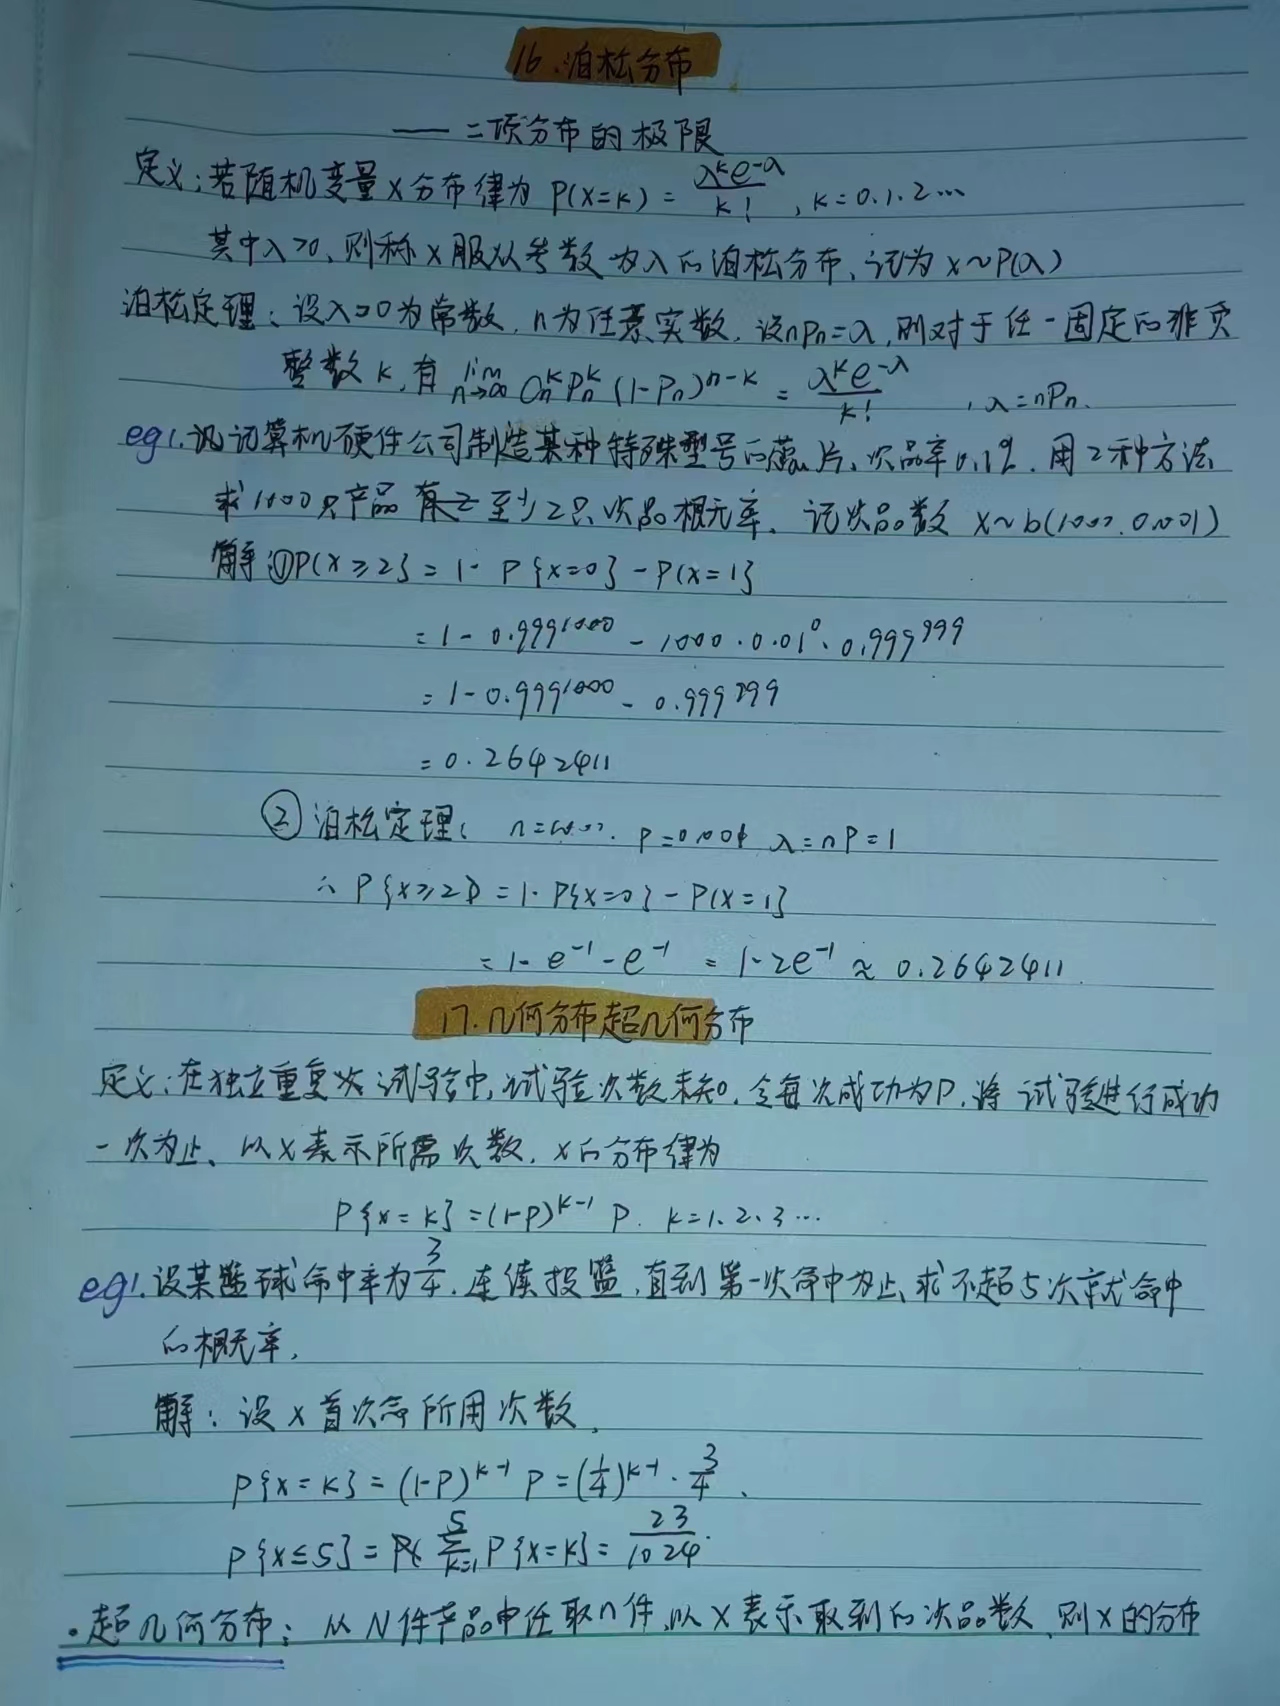 16.泊松分布
——二项分布的极限
定义:若随机变量X分布律为 P(X=K)=λᴷe^-λ/K!, K=0.1.2…
其中λ>0、则称X服从参数为λ的泊松分布、记为X~P(λ)
泊松定理:设λ>0为常数,n为任意实数,设nPn=λ,则对于任一固定的非负
整数K,有 lim n→∞ CₙᴷPₙᴷ(1-Pn)ⁿ⁻ᴷ = λᴷe^-λ/K! , λ=nPn.
eg1.设计算机硬件公司制造某种特殊型号的 片、次品率0.1%.用2种方法
求1000只产品 至少2只次品概率、记次品数 X~b(1000.0.001)
解:①P(X≥2}=1-P{X=0}-P(X=1}
=1-0.999¹⁰⁰⁰-1000·0.01⁰·0.999⁹⁹⁹
=1-0.999¹⁰⁰⁰-0.999⁹⁹⁹
=0.2642411
②泊松定理: n=1000. P=0.001 λ=nP=1
∴P{X≥2}=1-P{X=0}-P(X=1}
=1-e⁻¹-e⁻¹=1-2e⁻¹≈0.2642411
17.几何分布超几何分布
定义:在独立重复次试验中,试验次数未知,令每次成功为P,将试验进行成功
一次为止、以X表示所需次数,X的分布律为
P{X=K}=(1-P)ᴷ⁻¹P. K=1.2.3…
eg1.设某篮球命中率为3/4,连续投篮,直到第一次命中为止、求不超5次就命中
的概率,
解:设X首次命所用次数,
P{X=K}=(1-P)ᴷ⁻¹P=(1/4)ᴷ⁻¹·3/4、
P{X≤5}= 5∑K=1 P{X=K}=23/1024.
·超几何分布:从N件产品中任取n件,以X表示取到的次品数、则X的分布